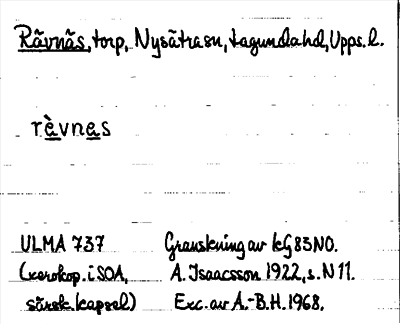 Rävnäs, torp, Nysätra sn, Lagunda hd, Upps. l.
rὲvnɛs
ULMA 737 Granskning av kG 83 NO.
(xerokop. i SOA, A. Isaacsson 1922, s. N 11.
särsk. kapsel) Exc. av A.-B.H. 1968.